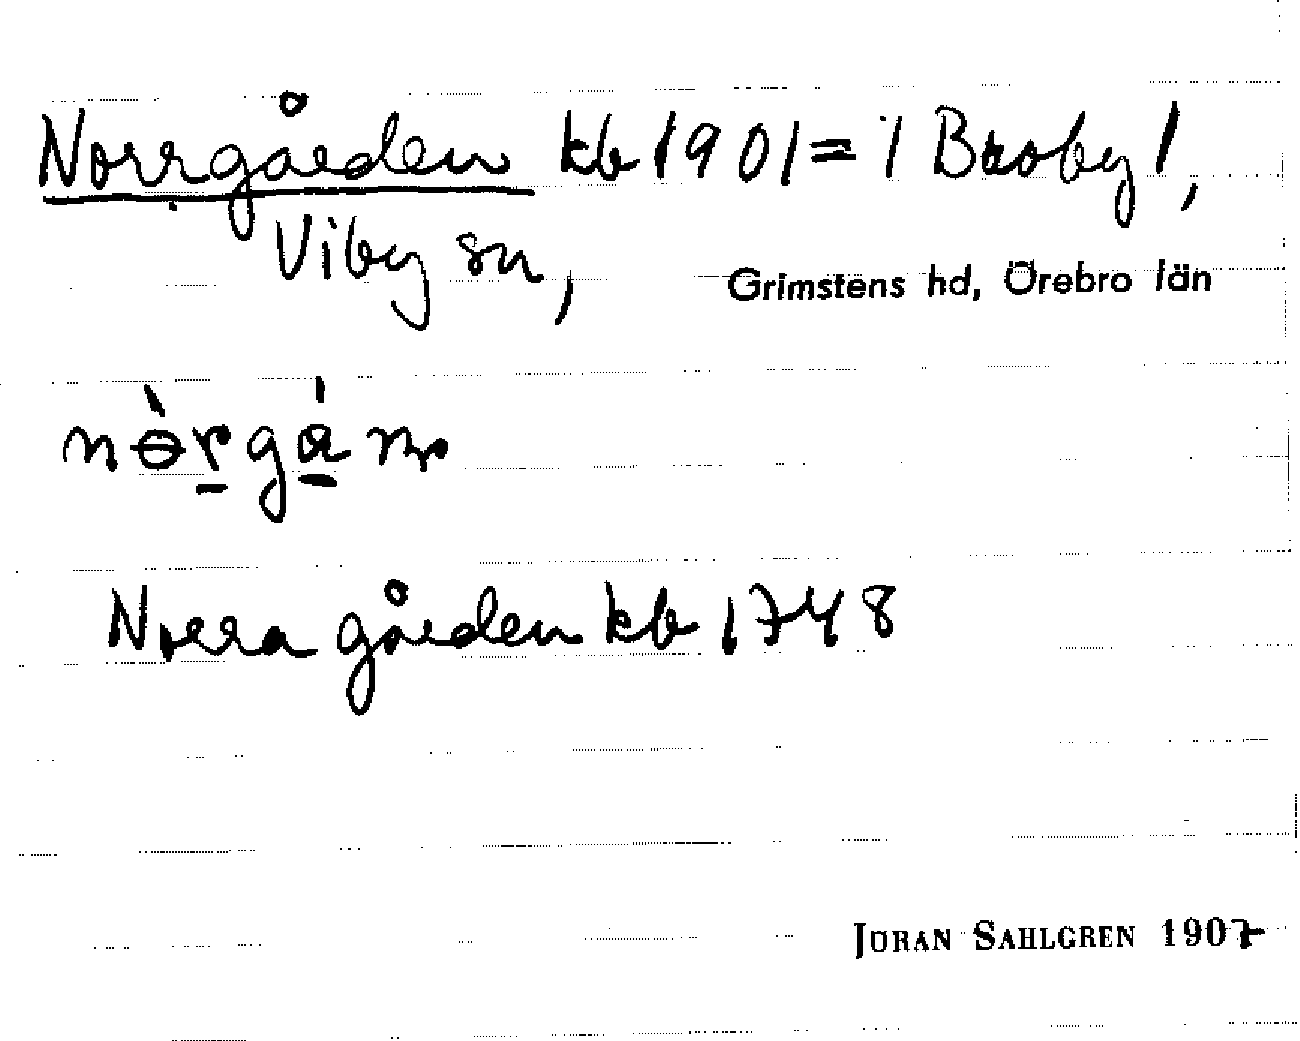 Norrgården kb 1901 = /Broby/,
Viby sn,
Grimstens hd, Örebro län
nɵ̀rgán
Norra gården kb 1748
JÖRAN SAHLGREN 1907